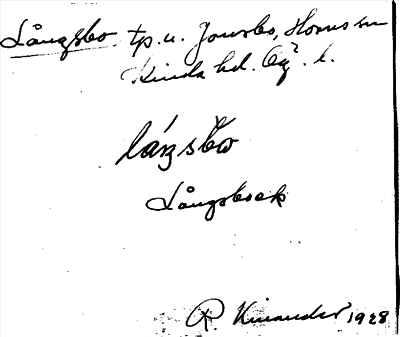 Långsbo tp. u. Jonsbo, Horns sn
Kinda hd. Ög. l.
lånsbo
Långsboek
R. Kinander 1928